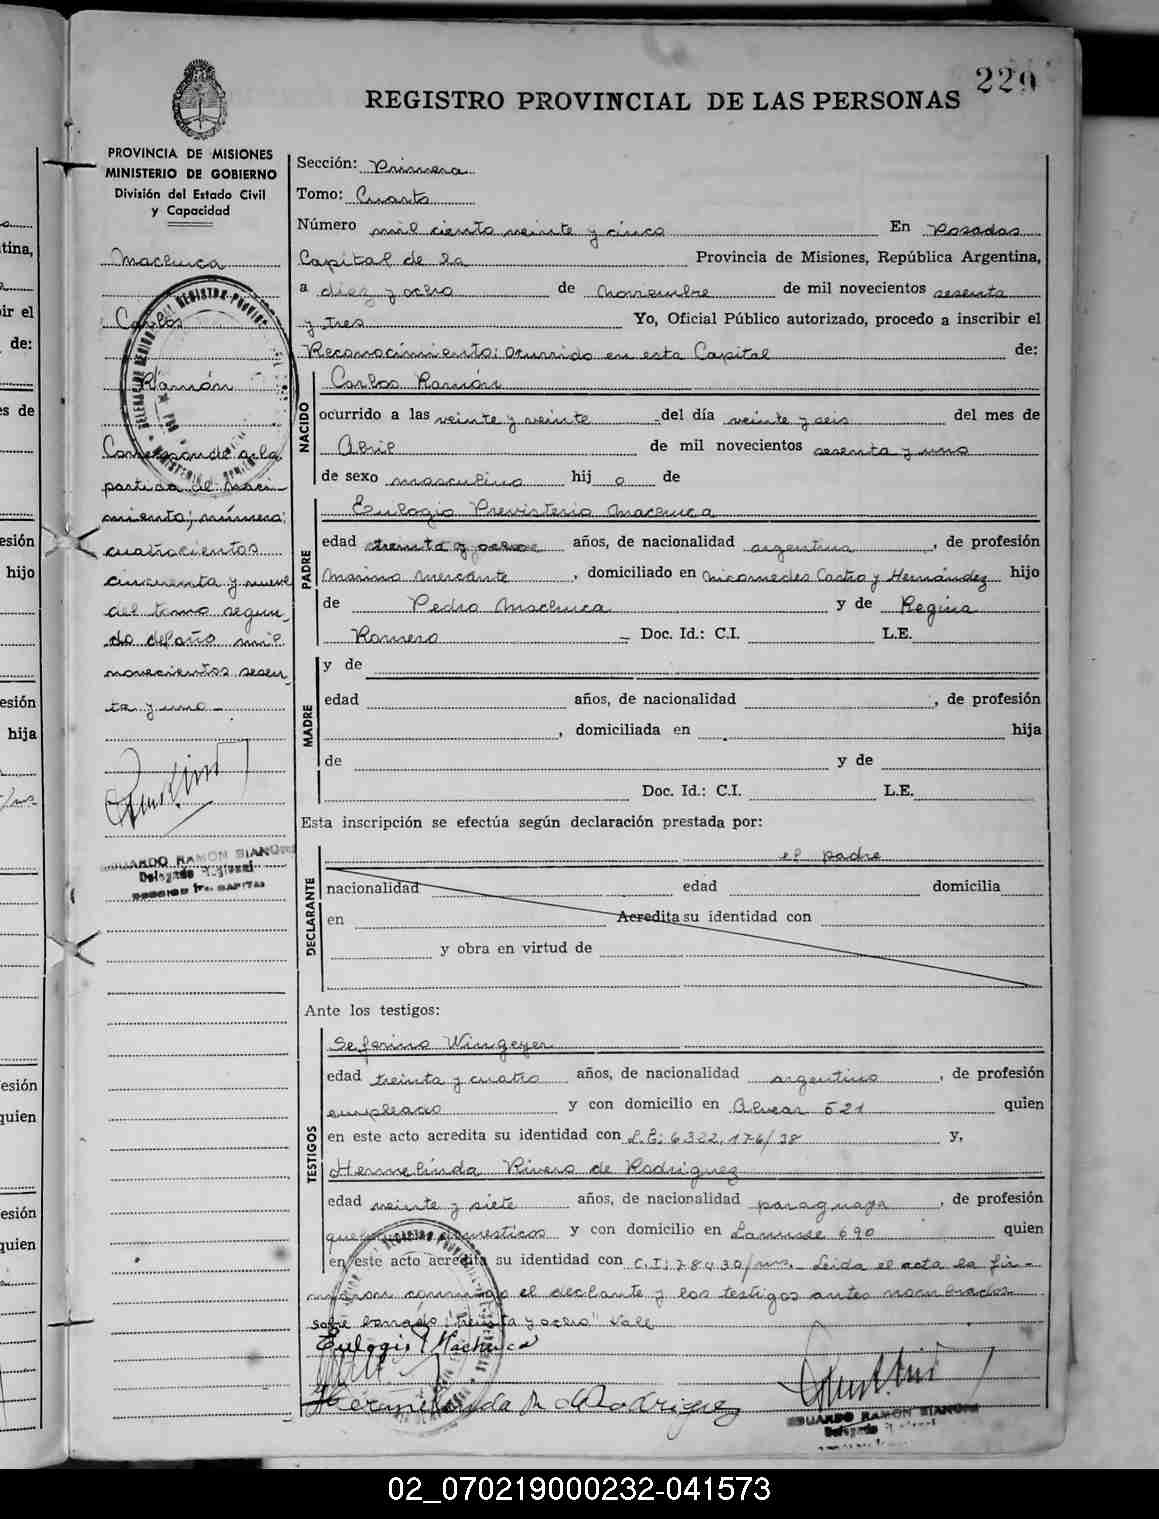 229
REGISTRO PROVINCIAL DE LAS PERSONAS
PROVINCIA DE MISIONES
MINISTERIO DE GOBIERNO
División del Estado Civil
y Capacidad
Machuca
Carlos
Ramón
Corresponde a la
partida de naci-
miento; número:
cuatrocientos
cincuenta y nueve
del tomo segun-
do del año mil
novecientos sesen-
ta y uno -
EDUARDO RAMON BIANCHI
Delegado Regional
Sección: Primera
Tomo: Cuarto
Número mil ciento veinte y cinco En Posadas
Capital de la Provincia de Misiones, República Argentina,
a diez y ocho de noviembre de mil novecientos sesenta
y tres Yo, Oficial Público autorizado, procedo a inscribir el
Reconocimiento: Ocurrido en esta Capital de:
NACIDO
Carlos Ramón
ocurrido a las veinte y veinte del día veinte y seis del mes de
Abril de mil novecientos sesenta y uno
de sexo masculino hij o de
PADRE
Eulogio Previsterio Machuca
edad treinta y ocho años, de nacionalidad argentina, de profesión
Marino Mercante, domiciliado en Nicomedes Castro y Hernández hijo
de Pedro Machuca y de Regina
Romero = Doc. Id.: C.I. L.E.
MADRE
y de
edad años, de nacionalidad , de profesión
, domiciliada en hija
de y de
Doc. Id.: C.I. L.E.
Esta inscripción se efectúa según declaración prestada por:
DECLARANTE
el padre
nacionalidad edad domicilia
en Acredita su identidad con
y obra en virtud de
Ante los testigos:
TESTIGOS
Seferino Wingeyer
edad treinta y cuatro años, de nacionalidad argentino, de profesión
empleado y con domicilio en Alvear 521 quien
en este acto acredita su identidad con L.E: 6322.176/38 y,
Hermelinda Rivero de Rodriguez
edad veinte y siete años, de nacionalidad paraguaya, de profesión
domesticos y con domicilio en Lanusse 690 quien
en este acto acredita su identidad con C.I: 78430/ms. Leida el acta la fir-
maron conmigo el declante y los testigos antes nombrados
sobre borrado: "treinta y ocho" Vale
Eulogio P Machuca
Hermelinda R de Rodriguez
EDUARDO RAMON BIANCHI
Delegado
tina,
ir el
de:
s de
esión
hijo
esión
hija
esión
quien
esión
quien
02_070219000232-041573